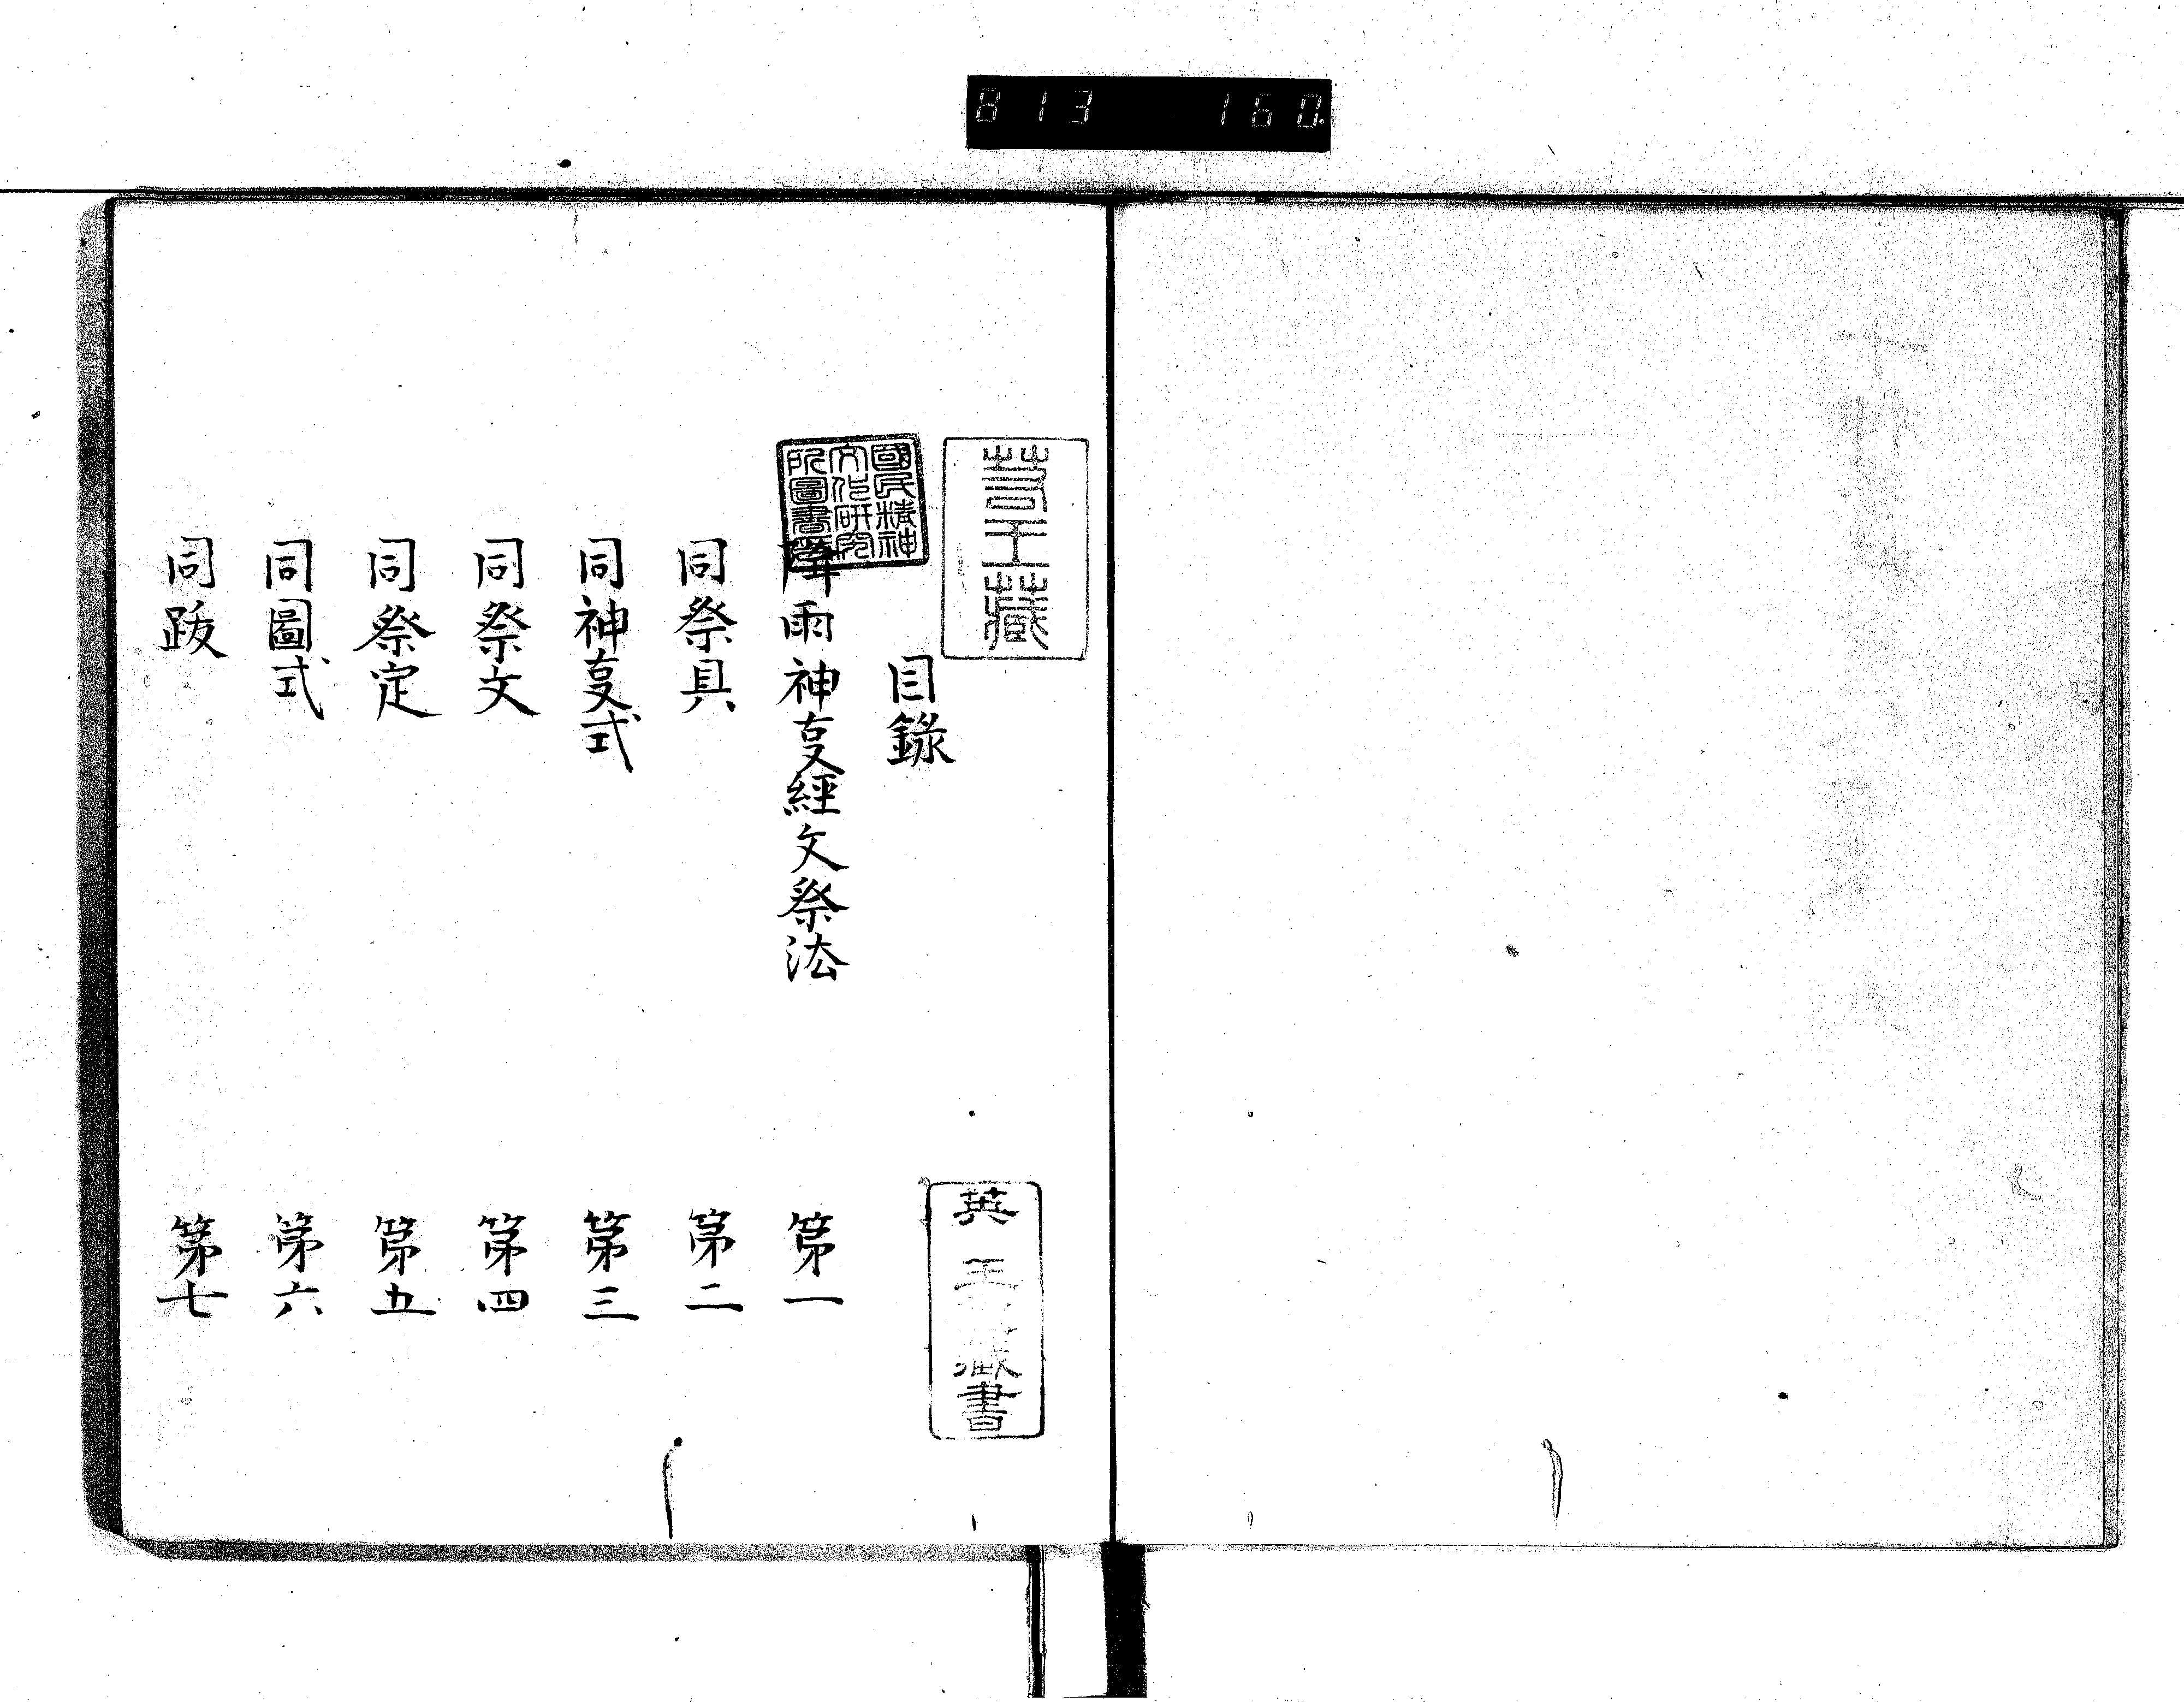 813 160.
目錄
降雨神㕝經文祭法 第一
同祭具 第二
同神㕝式 第三
同祭文 第四
同祭定 第五
同圖式 第六
同跋 第七
國民精神
文化研究
所圖書
王藏
英王
藏書